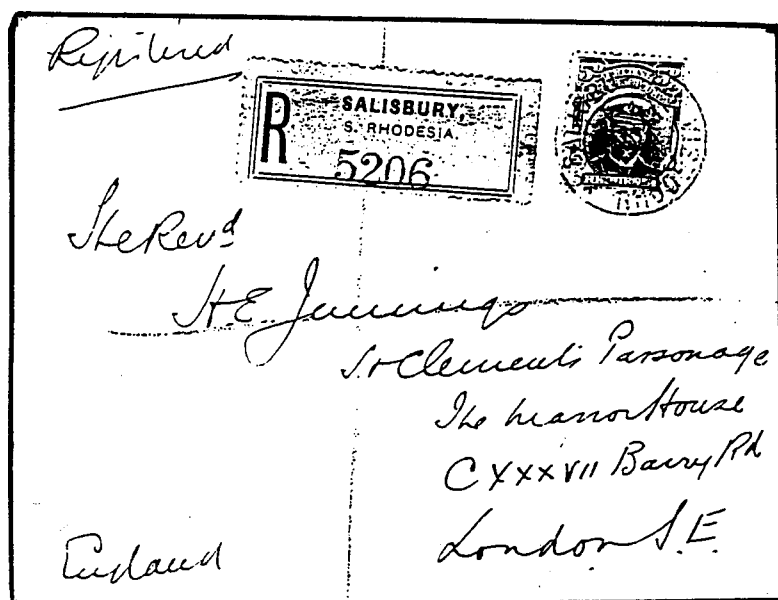 Registered
R
SALISBURY,
S. RHODESIA
5206
The Revd
H E Jennings
St Clement's Parsonage
The Manor House
CXXXVII Barry Rd
London S.E.
England